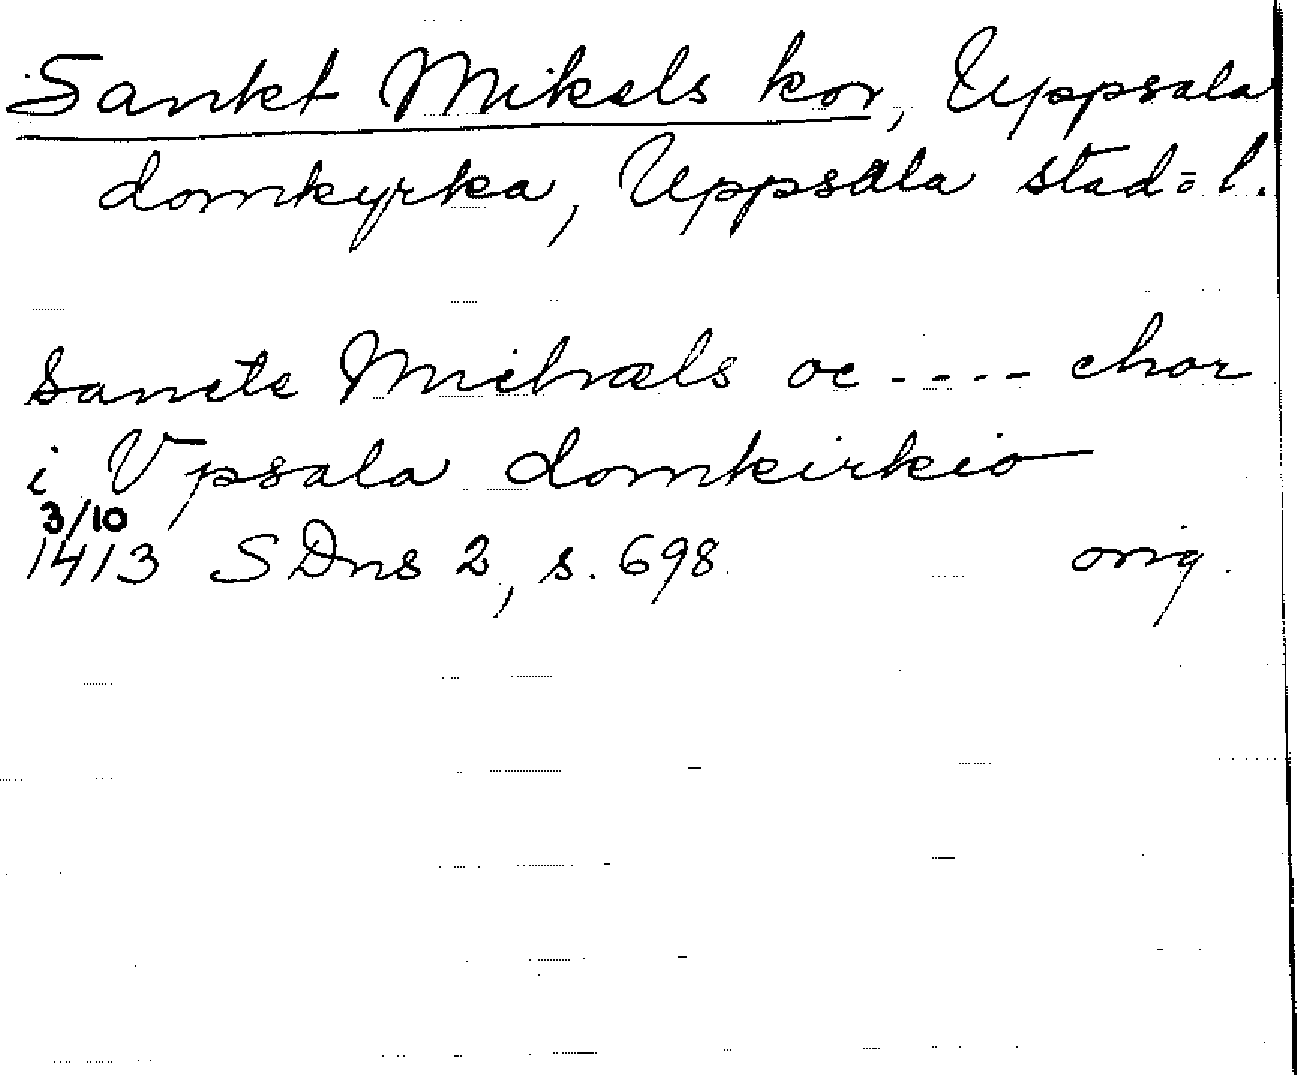 Sankt Mikels kor, Uppsala
domkyrka, Uppsala stad o l.
Sancte Michæls oc ---- chor
i Vpsala domkirkio
3/10
1413 SDns 2, s. 698 orig.